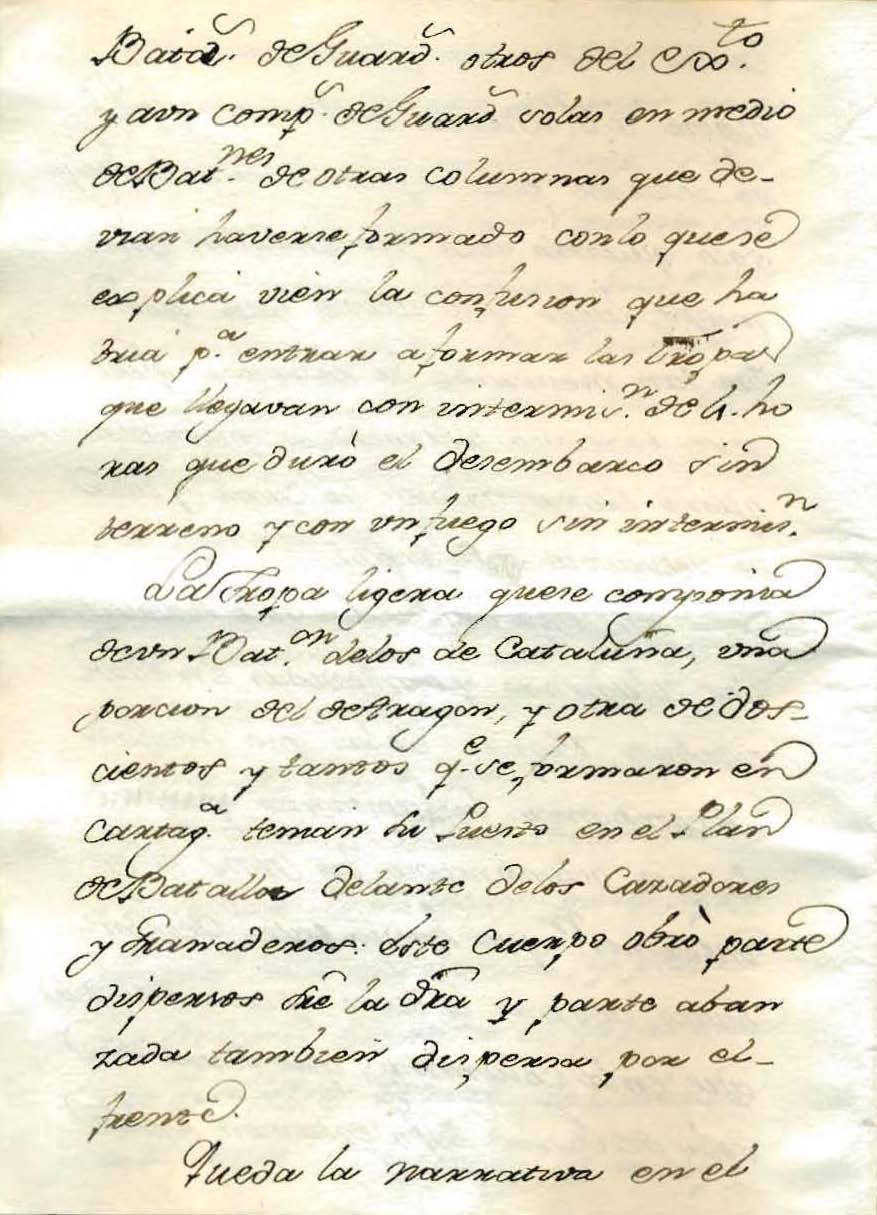 Batañ. de Guard̃. otros del exto.
y aun comp̃. de Guard̃ solas en medio
de Batnes. de otras columnas que de-
vian haverse formado con lo que se
explica vien la confusion que ha
bria p.a entrar a formar las tropas
que llegavan con intermis.n de 4. ho
ras que durò el desembarco sin
terreno y con un fuego sin intermis.n
La Tropa ligera que se componia
de un Bat.on de los de Cataluña, una
porcion del de Aragon, y otra de dos-
cientos y tantos q.e se formaron en
Cartag.a tenian su Puesto en el Plan
de Batalla delante de los Cazadores
y Granaderos: este Cuerpo obrò parte
dispersos sr̃e la dr̃a y parte aban
zada tambien dispersa por el-
frente.
Queda la narrativa en el